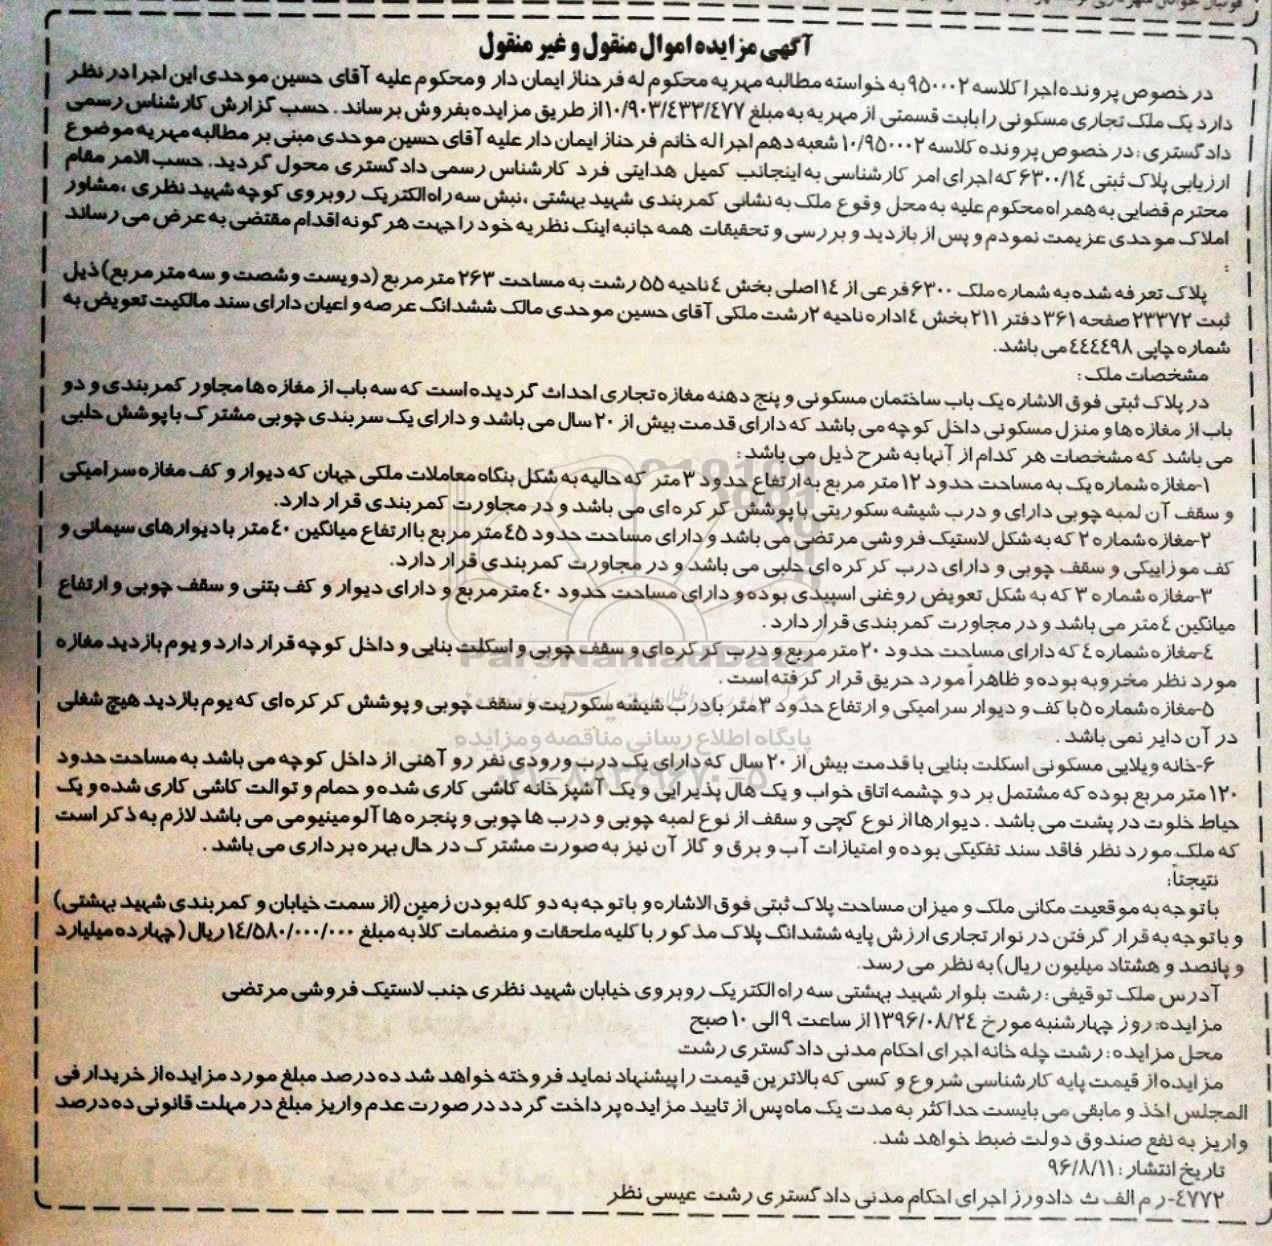 آگهی مزایده اموال منقول و غیر منقول
در خصوص پرونده اجرا کلاسه ۹۵۰۰۰۲ به خواسته مطالبه مهریه محکوم له فرحناز ایمان دار و محکوم علیه آقای حسین موحدی این اجرا در نظر
دارد یک ملک تجاری مسکونی را بابت قسمتی از مهریه به مبلغ ۱۰/۹۰۳/۴۳۳/۴۷۷ از طریق مزایده بفروش برساند . حسب گزارش کارشناس رسمی
دادگستری : در خصوص پرونده کلاسه ۱۰/۹۵۰۰۰۲ شعبه دهم اجرا له خانم فرحناز ایمان دار علیه آقای حسین موحدی مبنی بر مطالبه مهریه موضوع
ارزیابی پلاک ثبتی ۶۳۰۰/۱۴ که اجرای امر کارشناسی به اینجانب کمیل هدایتی فرد کارشناس رسمی دادگستری محول گردید. حسب الامر مقام
محترم قضایی به همراه محکوم علیه به محل وقوع ملک به نشانی کمربندی شهید بهشتی ، نبش سه راه الکتریک روبروی کوچه شهید نظری ، مشاور
املاک موحدی عزیمت نمودم و پس از بازدید و بررسی و تحقیقات همه جانبه اینک نظریه خود را جهت هر گونه اقدام مقتضی به عرض می رساند
:
پلاک تعرفه شده به شماره ملک ۶۳۰۰ فرعی از ۱۴ اصلی بخش ۴ ناحیه ۵۵ رشت به مساحت ۲۶۳ متر مربع (دویست و شصت و سه متر مربع) ذیل
ثبت ۲۳۳۷۲ صفحه ۳۶۱ دفتر ۲۱۱ بخش ۴ اداره ناحیه ۲ رشت ملکی آقای حسین موحدی مالک ششدانگ عرصه و اعیان دارای سند مالکیت تعویض به
شماره چاپی ۴۴۴۴۹۸ می باشد.
مشخصات ملک :
در پلاک ثبتی فوق الاشاره یک باب ساختمان مسکونی و پنج دهنه مغازه تجاری احداث گردیده است که سه باب از مغازه ها مجاور کمربندی و دو
باب از مغازه ها و منزل مسکونی داخل کوچه می باشد که دارای قدمت بیش از ۲۰ سال می باشد و دارای یک سربندی چوبی مشترک با پوشش حلبی
می باشد که مشخصات هر کدام از آنها به شرح ذیل می باشد :
۱-مغازه شماره یک به مساحت حدود ۱۲ متر مربع به ارتفاع حدود ۳ متر که حالیه به شکل بنگاه معاملات ملکی جهان که دیوار و کف مغازه سرامیکی
و سقف آن لمبه چوبی دارای و درب شیشه سکوریتی با پوشش کرکره ای می باشد و در مجاورت کمربندی قرار دارد.
۲-مغازه شماره ۲ که به شکل لاستیک فروشی مرتضی می باشد و دارای مساحت حدود ۴۵ متر مربع با ارتفاع میانگین ۴۰ متر با دیوارهای سیمانی و
کف موزاییکی و سقف چوبی و دارای درب کرکره ای حلبی می باشد و در مجاورت کمربندی قرار دارد.
۳-مغازه شماره ۳ که به شکل تعویض روغنی اسپیدی بوده و دارای مساحت حدود ۴۰ متر مربع و دارای دیوار و کف بتنی و سقف چوبی و ارتفاع
میانگین ۴ متر می باشد و در مجاورت کمربندی قرار دارد .
۴-مغازه شماره ۴ که دارای مساحت حدود ۲۰ متر مربع و درب کرکره ای و سقف چوبی و اسکلت بنایی و داخل کوچه قرار دارد و یوم بازدید مغازه
مورد نظر مخروبه بوده و ظاهراً مورد حریق قرار گرفته است .
۵-مغازه شماره ۵ با کف و دیوار سرامیکی و ارتفاع حدود ۳ متر با درب شیشه سکوریت و سقف چوبی و پوشش کرکره ای که یوم بازدید هیچ شغلی
در آن دایر نمی باشد .
۶-خانه ویلایی مسکونی اسکلت بنایی با قدمت بیش از ۲۰ سال که دارای یک درب ورودی نفر رو آهنی از داخل کوچه می باشد به مساحت حدود
۱۲۰ متر مربع بوده که مشتمل بر دو چشمه اتاق خواب و یک هال پذیرایی و یک آشپزخانه کاشی کاری شده و حمام و توالت کاشی کاری شده و یک
حیاط خلوت در پشت می باشد . دیوارها از نوع گچی و سقف از نوع لمبه چوبی و درب ها چوبی و پنجره ها آلومینیومی می باشد لازم به ذکر است
که ملک مورد نظر فاقد سند تفکیکی بوده و امتیازات آب و برق و گاز آن نیز به صورت مشترک در حال بهره برداری می باشد .
نتیجتاً:
با توجه به موقعیت مکانی ملک و میزان مساحت پلاک ثبتی فوق الاشاره و با توجه به دو کله بودن زمین (از سمت خیابان و کمربندی شهید بهشتی)
و با توجه به قرار گرفتن در نوار تجاری ارزش پایه ششدانگ پلاک مذکور با کلیه ملحقات و منضمات کلا به مبلغ ۱۴/۵۸۰/۰۰۰/۰۰۰ ریال (چهارده میلیارد
و پانصد و هشتاد میلیون ریال) به نظر می رسد.
آدرس ملک توقیفی : رشت بلوار شهید بهشتی سه راه الکتریک روبروی خیابان شهید نظری جنب لاستیک فروشی مرتضی
مزایده: روز چهارشنبه مورخ ۱۳۹۶/۰۸/۲۴ از ساعت ۹ الی ۱۰ صبح
محل مزایده : رشت چله خانه اجرای احکام مدنی دادگستری رشت
مزایده از قیمت پایه کارشناسی شروع و کسی که بالاترین قیمت را پیشنهاد نماید فروخته خواهد شد ده درصد مبلغ مورد مزایده از خریدار فی
المجلس اخذ و مابقی می بایست حداکثر به مدت یک ماه پس از تایید مزایده پرداخت گردد در صورت عدم واریز مبلغ در مهلت قانونی ده درصد
واریز به نفع صندوق دولت ضبط خواهد شد.
تاریخ انتشار : ۹۶/۸/۱۱
۴۷۷۲-ر م الف ث دادورز اجرای احکام مدنی دادگستری رشت عیسی نظر
ParsNamadData
پایگاه اطلاع رسانی مناقصه و مزایده